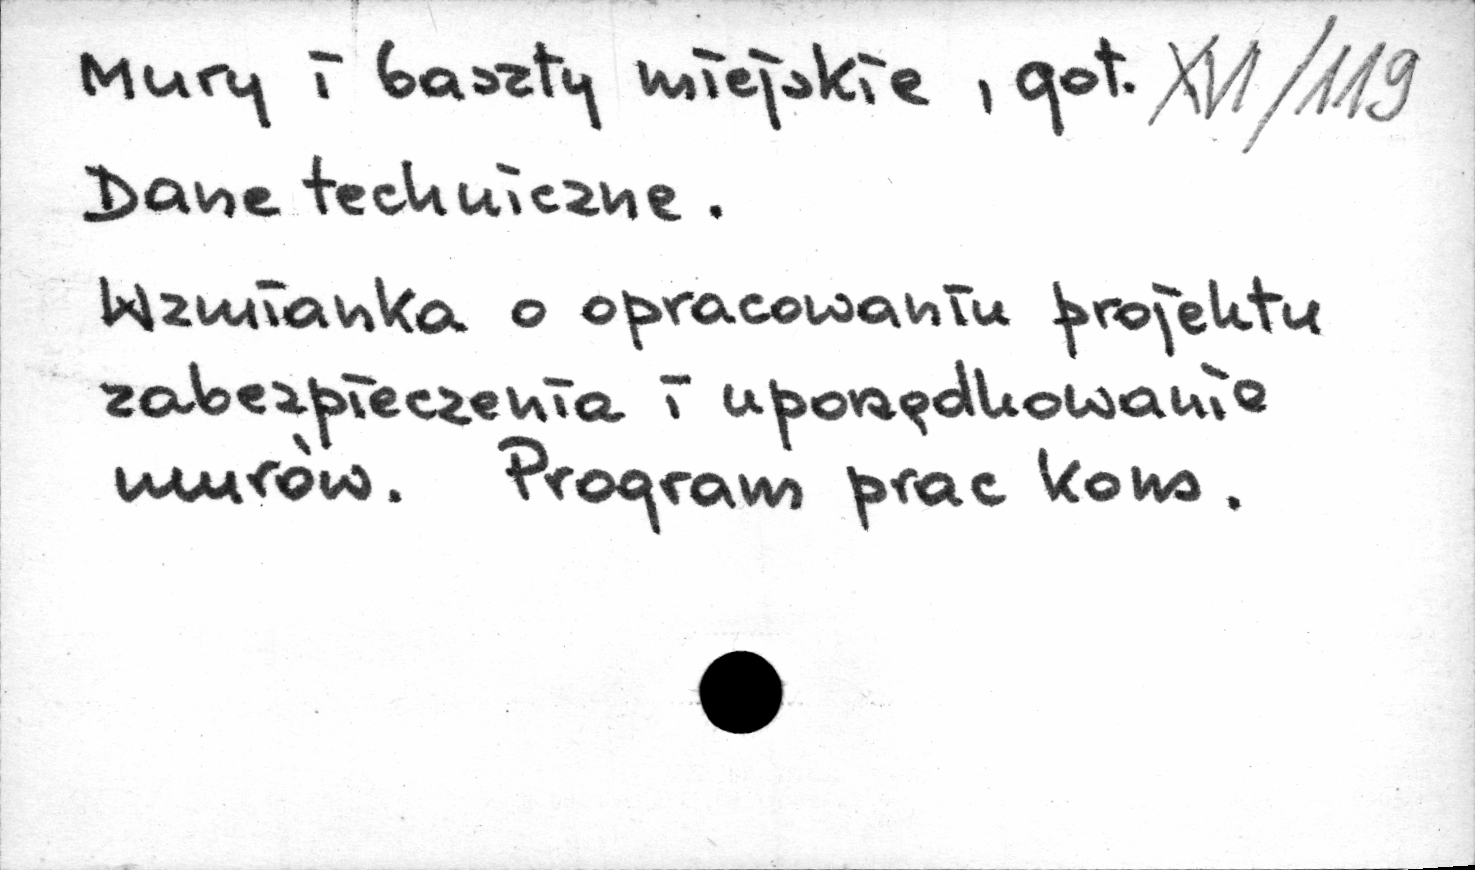 Mury i baszty miejskie, got. XVI/119
Dane techniczne.
Wzmianka o opracowaniu projektu
zabezpieczenia i uporządkowanie
murów. Program prac kons.